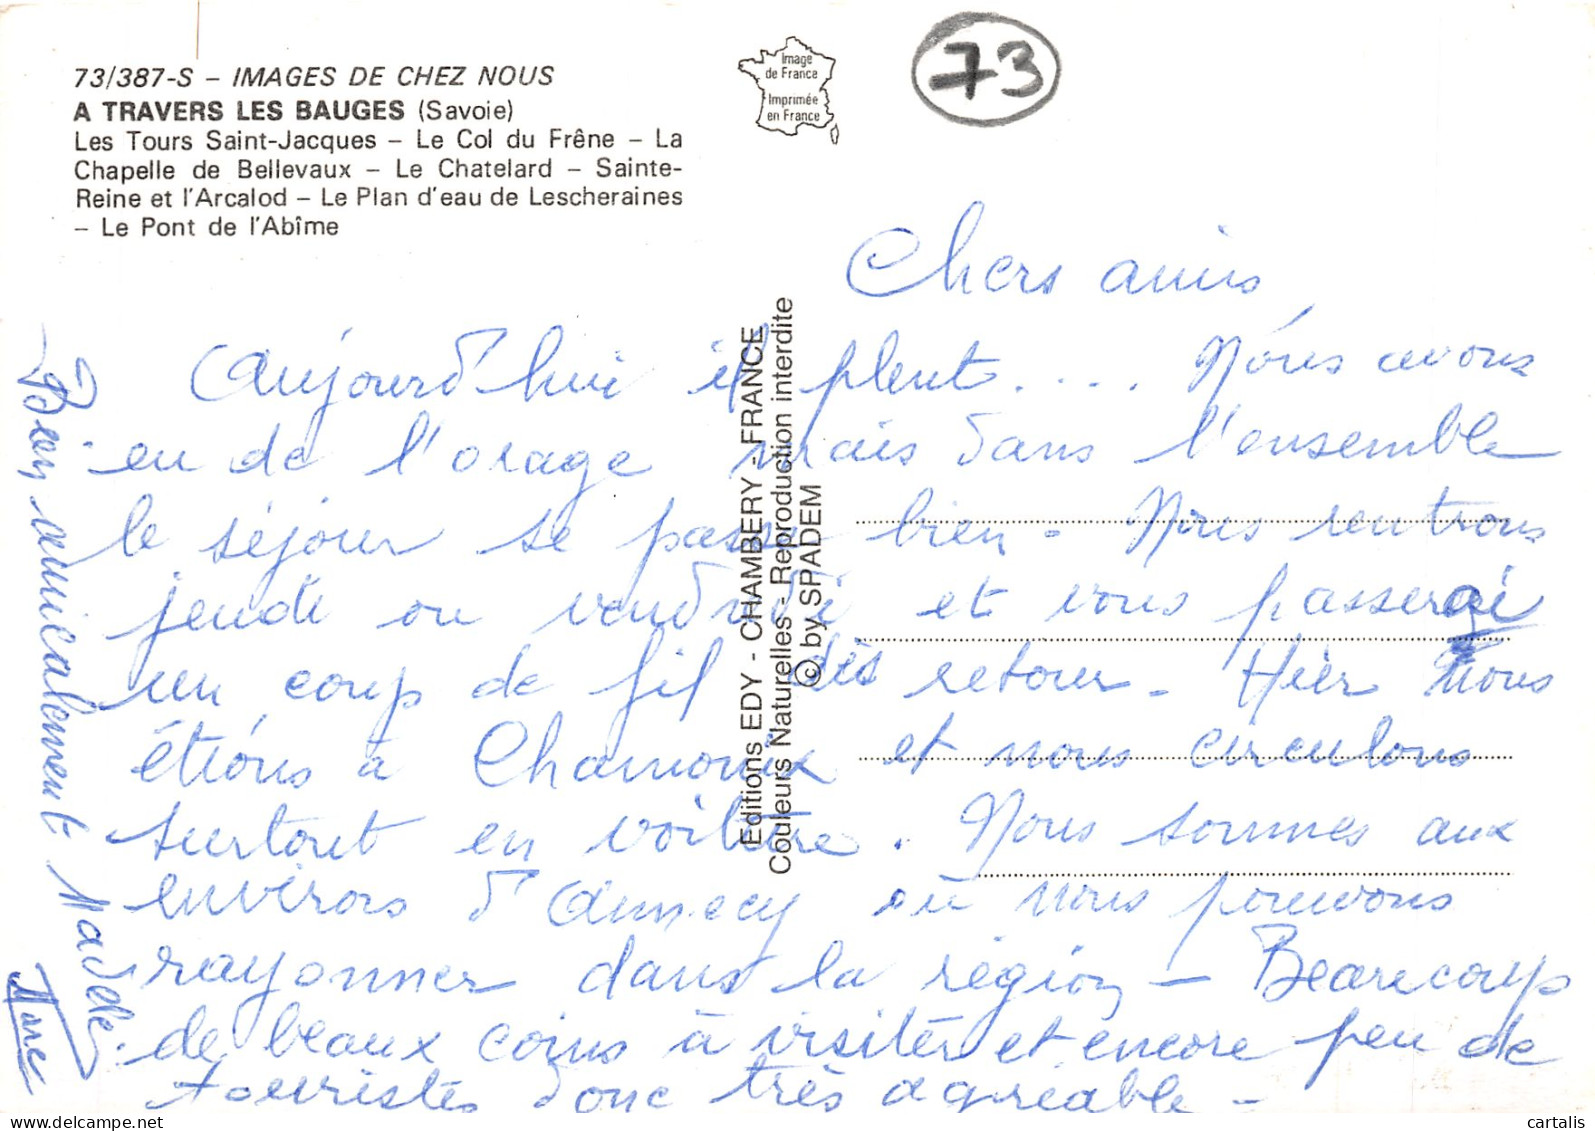 73/387-S – IMAGES DE CHEZ NOUS
A TRAVERS LES BAUGES (Savoie)
Les Tours Saint-Jacques – Le Col du Frêne – La
Chapelle de Bellevaux – Le Chatelard – Sainte-
Reine et l'Arcalod – Le Plan d'eau de Lescheraines
– Le Pont de l'Abîme
Image
de France
Imprimée
en France
73
Editions EDY - CHAMBERY - FRANCE
Couleurs Naturelles - Reproduction interdite
© by SPADEM
Chers amis
Aujourd'hui il pleut.... Nous avons
eu de l'orage mais dans l'ensemble
le séjour se passe bien - Nous rentrons
jeudi ou vendredi et vous passerai
un coup de fil dès retour - Hier nous
étions à Chamonix et nous circulons
surtout en voiture. Nous sommes aux
environs d'Annecy où nous pouvons
rayonner dans la région - Beaucoup
de beaux coins à visiter et encore peu de
touristes donc très agréable -
Bien amicalement